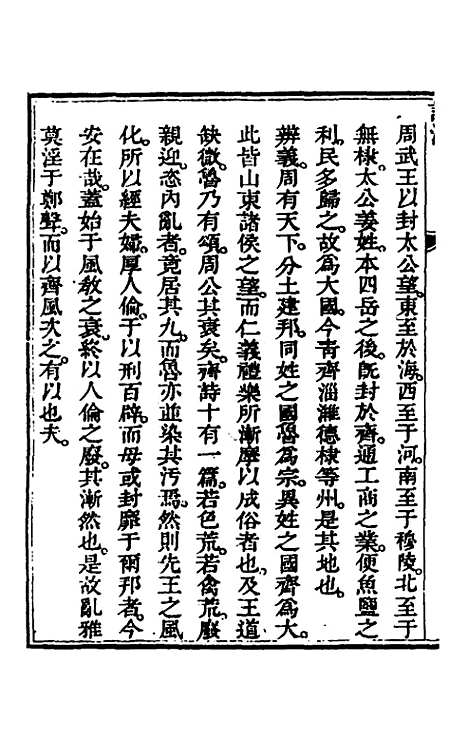 周武王以封太公望。東至於海。西至于河。南至于穆陵。北至于
無棣。太公姜姓。本四岳之後。旣封於齊。通工商之業。便魚鹽之
利。民多歸之。故爲大國。今青齊淄濰德棣等州。是其地也。
辨義。周有天下。分土建邦。同姓之國魯爲宗。異姓之國齊爲大。
此皆山東諸侯之望。而仁義禮樂所漸靡以成俗者也。及王道
缺微。魯乃有頌。周公其衰矣。齊詩十有一篇。若色荒。若禽荒。廢
親迎。恣內亂者。竟居其九。而魯亦並染其污焉。然則先王之風
化。所以經夫婦。厚人倫。于以刑百辟。而毋或封靡于爾邦者。今
安在哉。蓋始于風教之衰。終以人倫之廢。其漸然也。是故亂雅
莫淫于鄭聲。而以齊風次之。有以也夫。